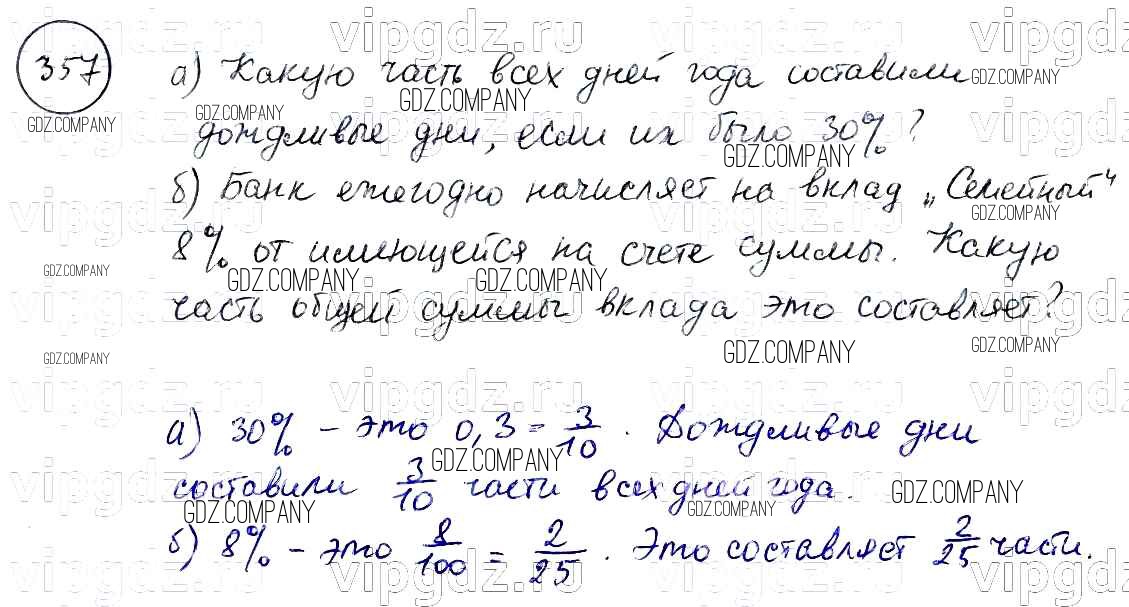 357
а) Какую часть всех дней года составили
дождливые дни, если их было 30%?
б) Банк ежегодно начисляет на вклад „Семейный“
8% от имеющейся на счете суммы. Какую
часть общей суммы вклада это составляет?
а) 30% – это 0,3 = 3/10. Дождливые дни
составили 3/10 части всех дней года.
б) 8% – это 8/100 = 2/25. Это составляет 2/25 части.
vipgdz.ru
GDZ.COMPANY